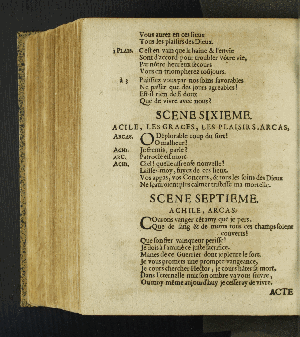 Vous aurez en ces lieux
Tous les plaisirs des Dieux.
2 PLAIS. C'est en vain que la haine & l'envie
Sont d'accord pour troubler vôtre vie,
Par nôtre heureux secours
Vous en triompherez toûjours.
à 3 Plaisirs vous par nos soins favorables
Ne passer que des jours agreables!
Est-il rien de si doux
Que de vivre avec nous?
SCENE SIXIEME.
ACILE, LES GRACES, LES PLAISIRS, ARCAS,
ARCAS. O Déplorable coup du sort!
O malheur!
ACH. Je fremis, parle?
ARC. Patrocle est mort
ACH. Ciel! quelle affreuse nouvelle?
Laissez-moy, fuyez de ces lieux,
Vos appas, vos Concerts, & tous les soins des Dieux
Ne sçauroient plus calmer ma mortelle.
SCENE SEPTIEME.
ACHILE, ARCAS.
COurons vanger cet amy que je pers,
Que de sang & de morts tous ces champs soient
couverts!
Que son fier vainqueur perisse?
Je dois à l'amitié ce juste sacrifice.
Manes de ce Guerrier dont je plains le sort,
Je vous promets une prompte vangeance,
Je cours chercher Hector, je cours hâter sa mort.
Dans l'éternelle nuit son ombre va vous suivre,
Ou moy même aujourd'huy je cesseray de vivre.
ACTE